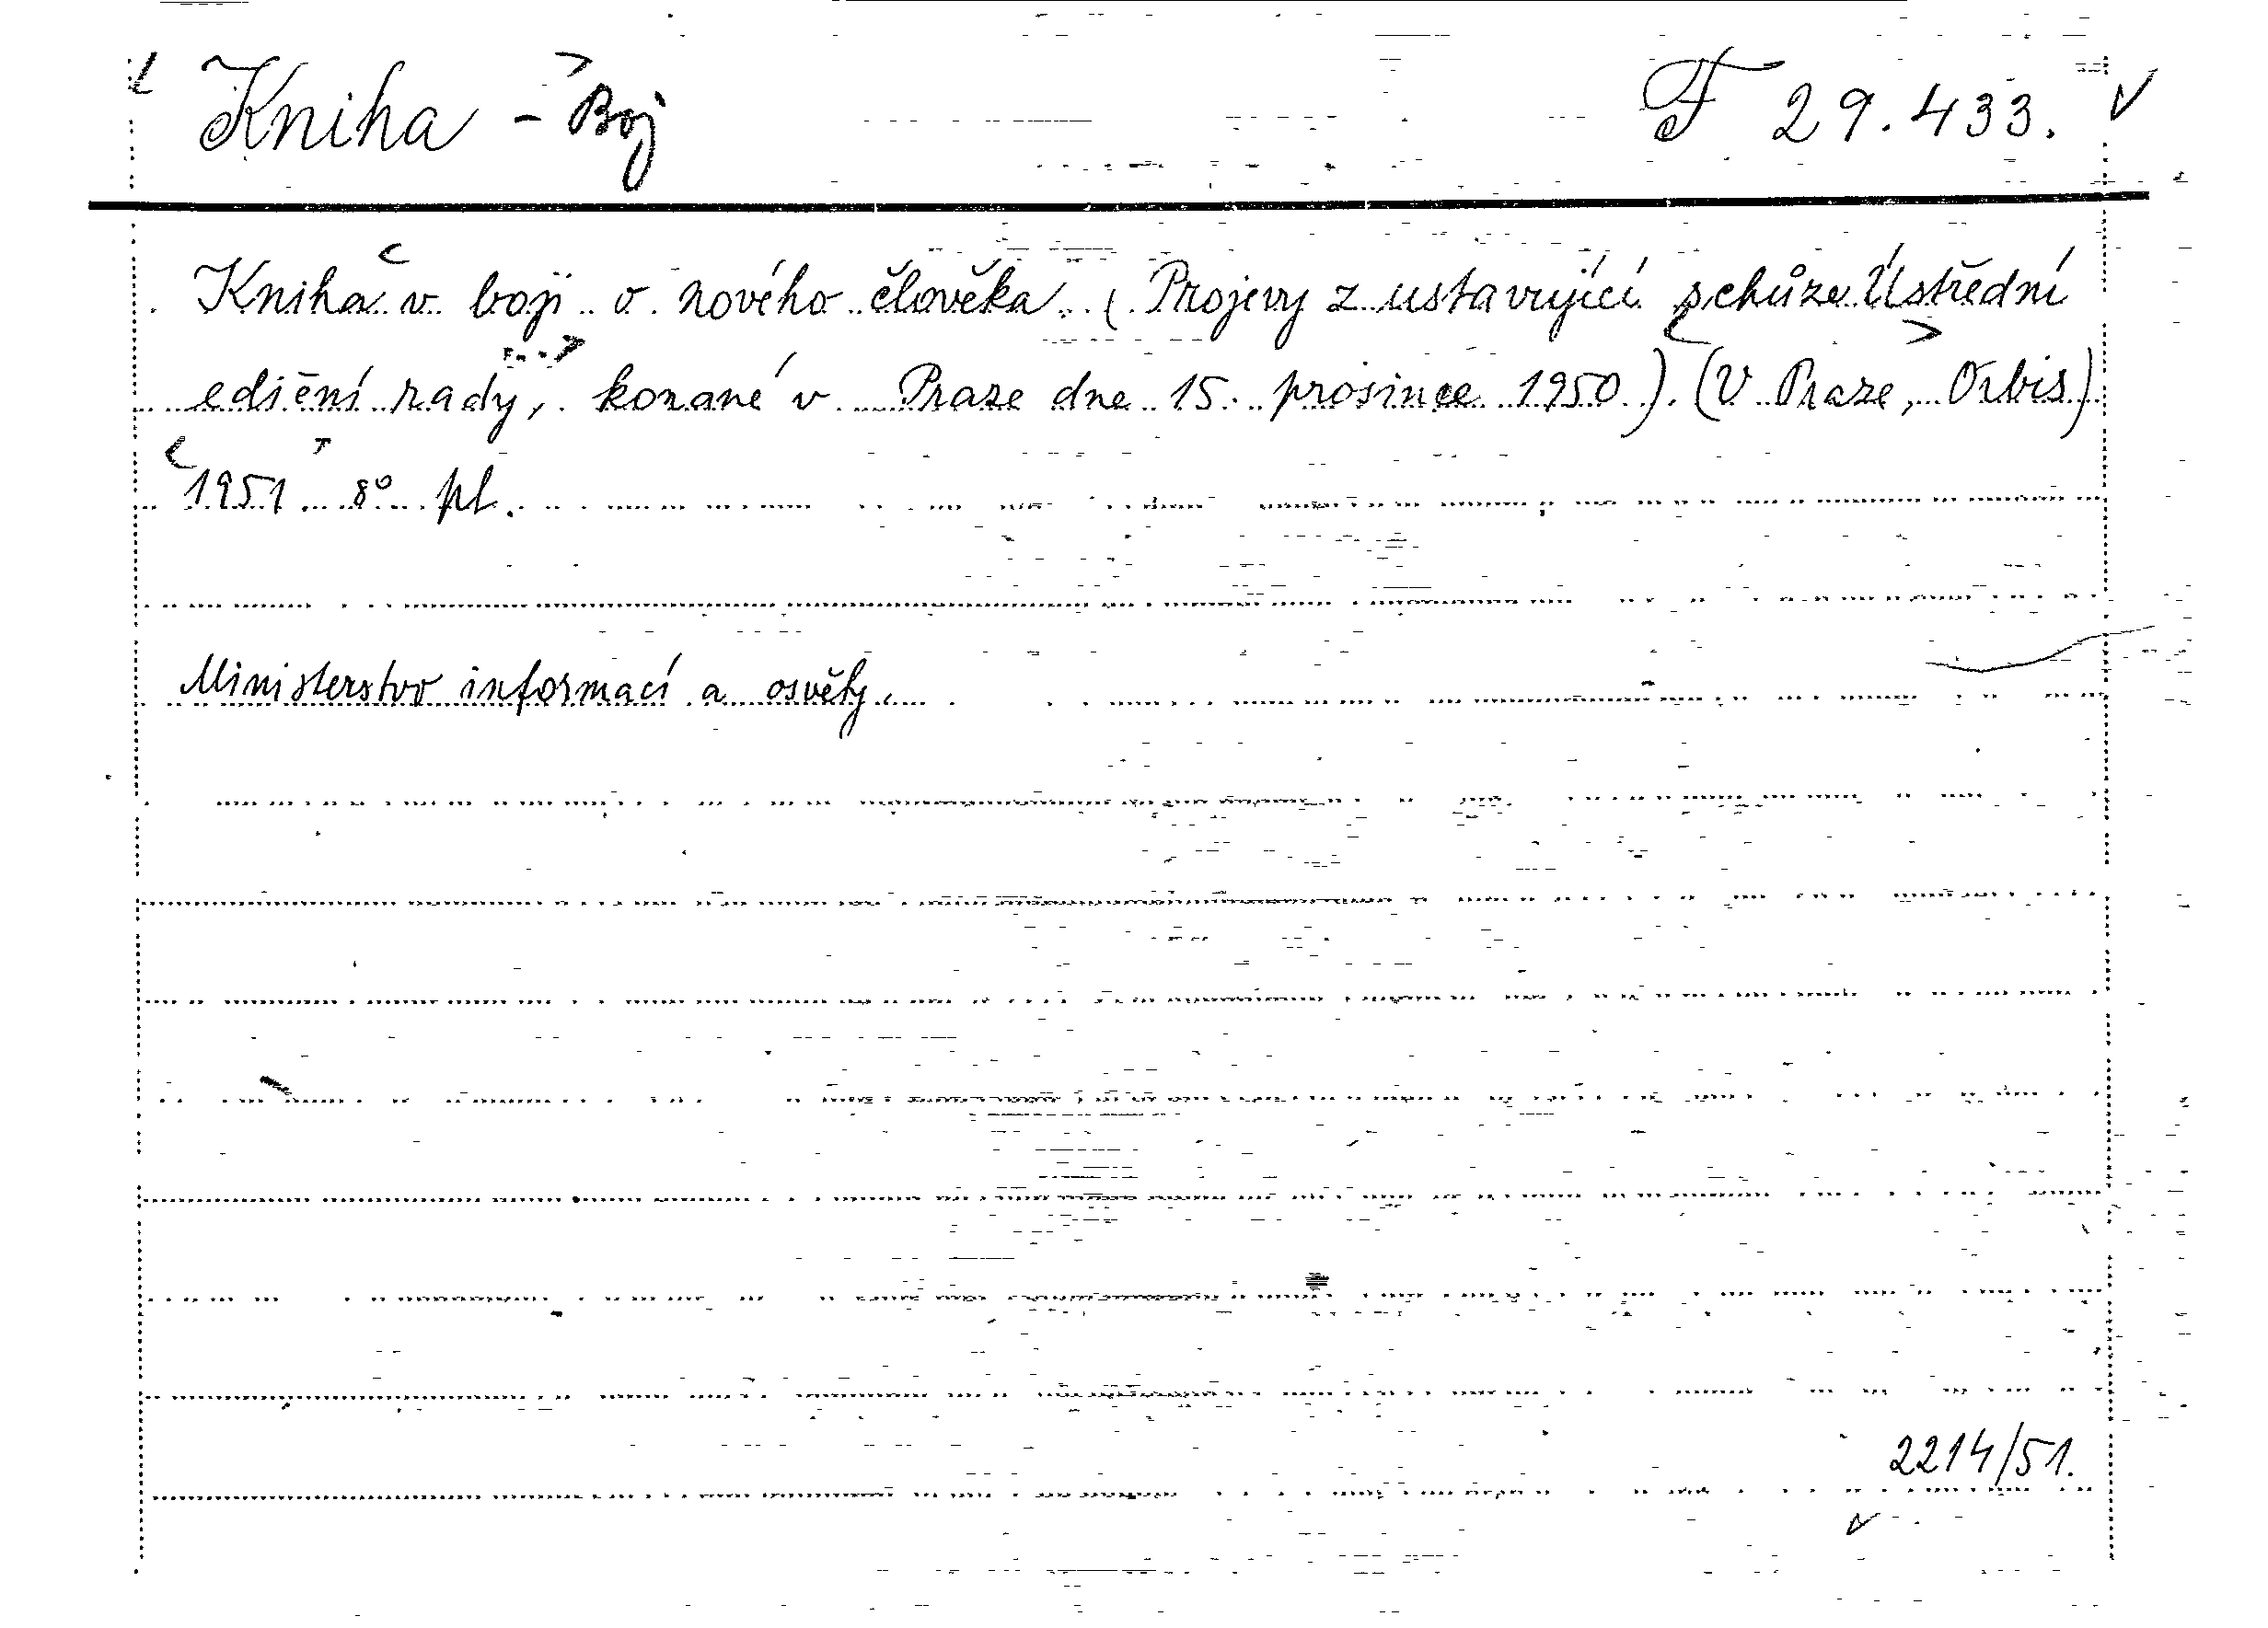 Kniha - Boj F 29.433.
Kniha v boji o nového člověka. (Projevy z ustavující schůze Ústřední
ediční rady, konané v Praze dne 15. prosince 1950). (V Praze, Orbis)
1951. 8° pl.
Ministerstvo informací a osvěty.
2214/51.